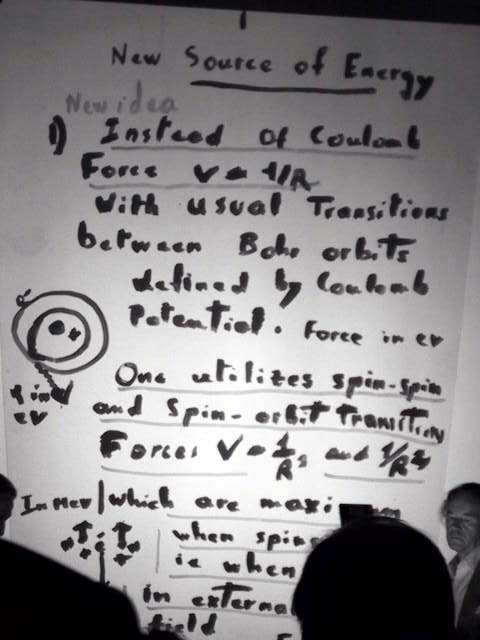 New Source of Energy
New idea
1) Instead of Coulomb
Force V = 1/R
with usual Transitions
between Bohr orbits
defined by Coulomb
Potential. Force in ev
in
ev
One utilizes spin-spin
and Spin-orbit Transition
Forces V = and
In Mev which are
when spins
ie when
in externa
field